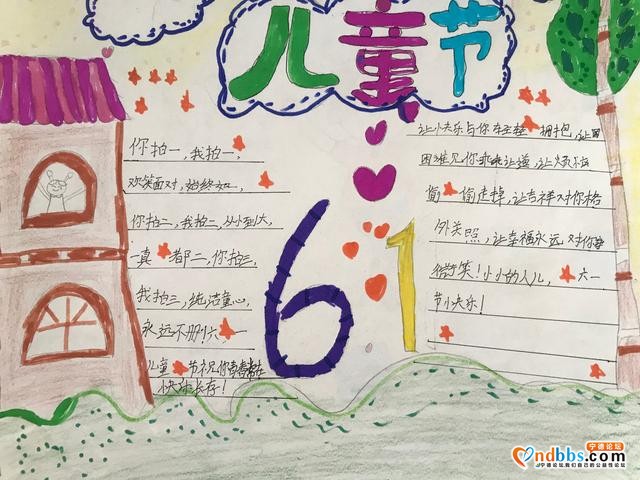 儿童节
你拍一,我拍一,
欢笑面对,始终如一,
你拍二,我拍二,从小到大,
一真都二,你拍三,
我拍三,纯洁童心,
永远不删!六一
儿童节祝你青春常在
快乐长存!
61
让小快乐与你左拥抱,让
困难见你乖乖让道,让烦恼
偷偷走掉,让吉祥对你格
外关照,让幸福永远对你
微笑!小小的人儿,六一
节小快乐!
ndbbs.com
宁德论坛